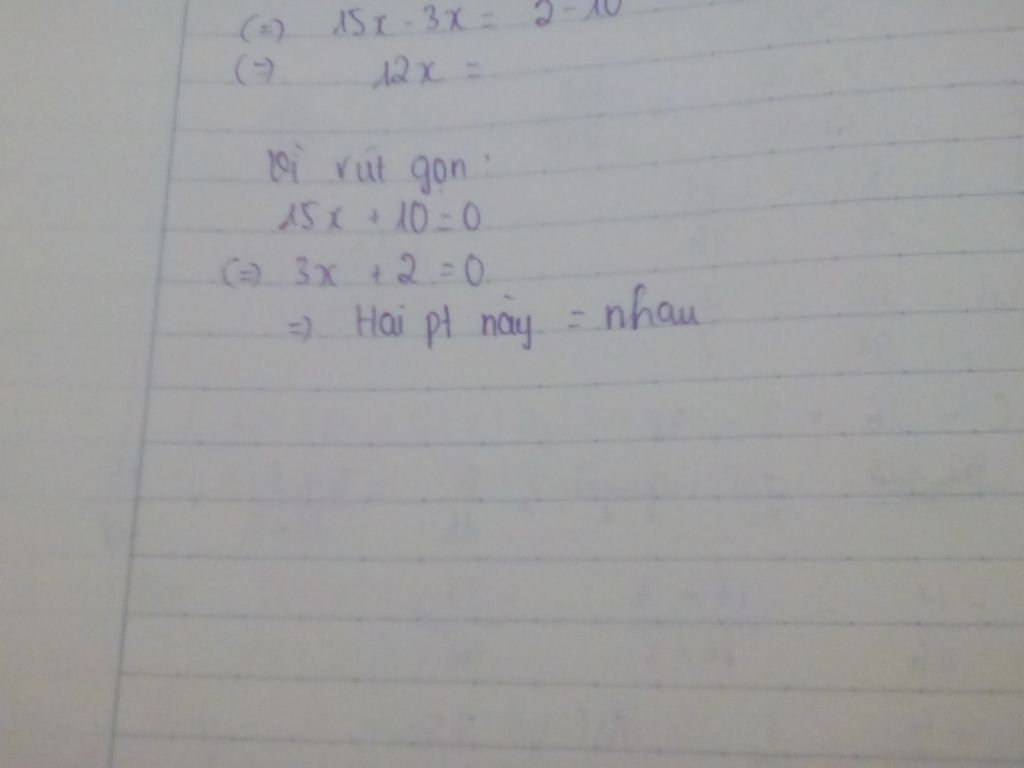 (=) 15x - 3x = 2 - 10
(=) 12x =
Vì rút gọn :
15x + 10 = 0
(=) 3x + 2 = 0
=) Hai pt này = nhau